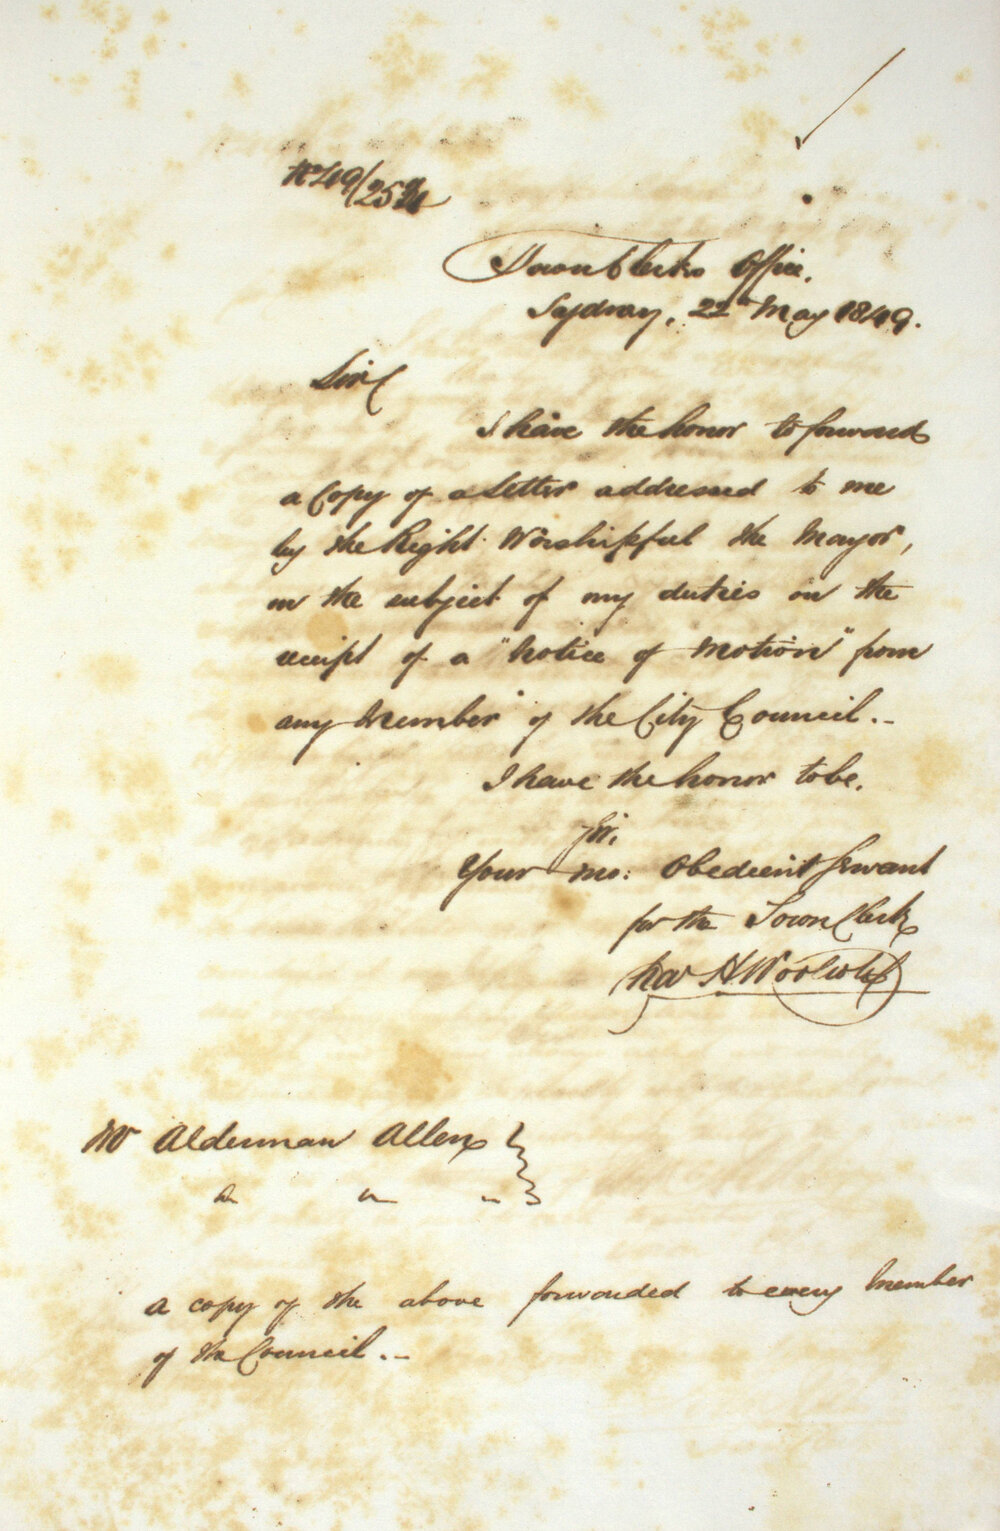 No 49/25
Town Clerks Office.
Sydney, 22nd May 1849.
Sir
I have the honor to forward
a Copy of a Letter addressed to me
by the Right Worshipful the Mayor,
on the subject of my duties on the
receipt of a "Notice of Motion" from
any Member of the City Council.-
I have the honor to be.
Sir,
Your mo: Obedient Servant
for the Town Clerk
H Woolcott
Mr Alderman Allen
A copy of the above forwarded to every Member
of the Council.-